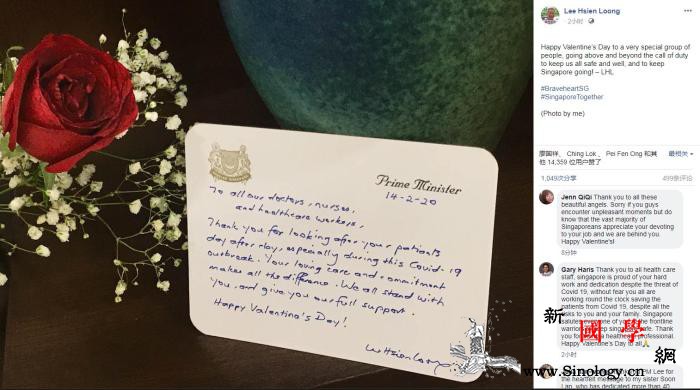 Prime Minister
14-2-20
To all our doctors, nurses,
and healthcare workers,
Thank you for looking after your patients
day after day, especially during this Covid-19
outbreak. Your loving care and commitment
makes all the difference. We all stand with
you, and give you our full support.
Happy Valentine's Day!
Lee Hsien Loong
2小时
Happy Valentine's Day to a very special group of
people, going above and beyond the call of duty
to keep us all safe and well, and to keep
Singapore going! – LHL
#BraveheartSG
#SingaporeTogether
(Photo by me)
廖国祥、 Ching Lok 、 Pei Fen Ong 和其
他 14,359 位用户赞了
最相关
1,049次分享
499条评论
Jenn QiQi Thank you to all these
beautiful angels. Sorry if you guys
encounter unpleasant moments but do
know that the vast majority of
Singaporeans appreciate your devoting
to your job and we are behind you.
Happy Valentine's!
8分钟
Gary Haris Thank you to all health care
staff, singapore is proud of your hard
work and dedication despite the threat of
Covid 19, without fear you all are
working round the clock saving the
patients from Covid 19, despite all the
risks to you and your family. Singapore
Happy Valentine's Day to all
2小时
PM Lee for
the heartfelt message to my sister Soon
Lan, who has dedicated more than 40
新國學網
www.Sinology.cn